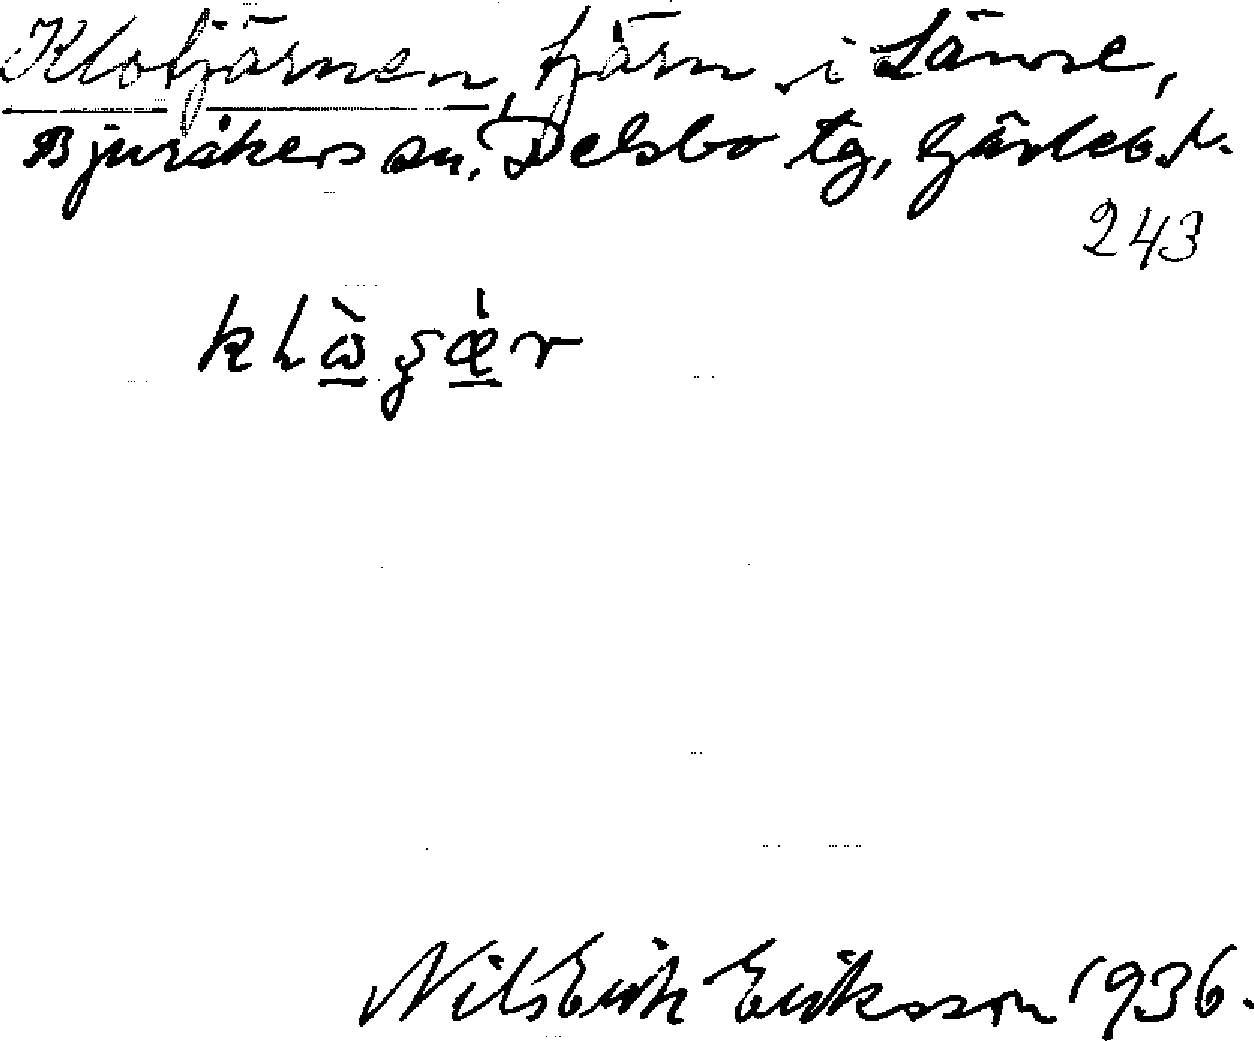 Klotjärnen, tjärn i Länne,
Bjuråkers sn. Delsbo tg, Gävleb. l.
243
Nils Erik Eriksson 1936.